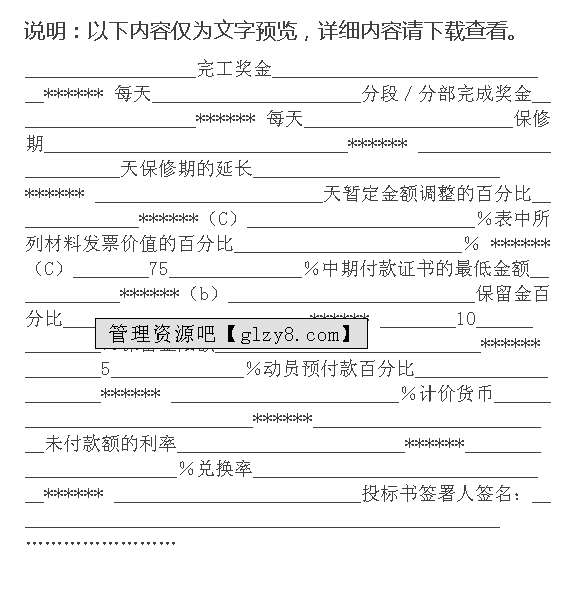 说明：以下内容仅为文字预览，详细内容请下载查看。
__________________完工奖金____________________________
__****** 每天______________________分段／分部完成奖金__
__________________****** 每天______________________保修
期________________________________****** ______________
__________天保修期的延长__________________________
****** ________________________天暂定金额调整的百分比__
____________******（C）________________________％表中所
列材料发票价值的百分比________________________％ ******
（C）________75______________％中期付款证书的最低金额__
__________******（b）__________________________保留金百
分比__________________________****** ________10______
管理资源吧【glzy8.com】
____________________________******
________5______________％动员预付款百分比______________
________****** ________________________％计价货币______
________________________******________________________
__未付款额的利率________________________******________
________________％兑换率______________________________
__****** __________________________投标书签署人签名：__
__________________________________________________
……………………